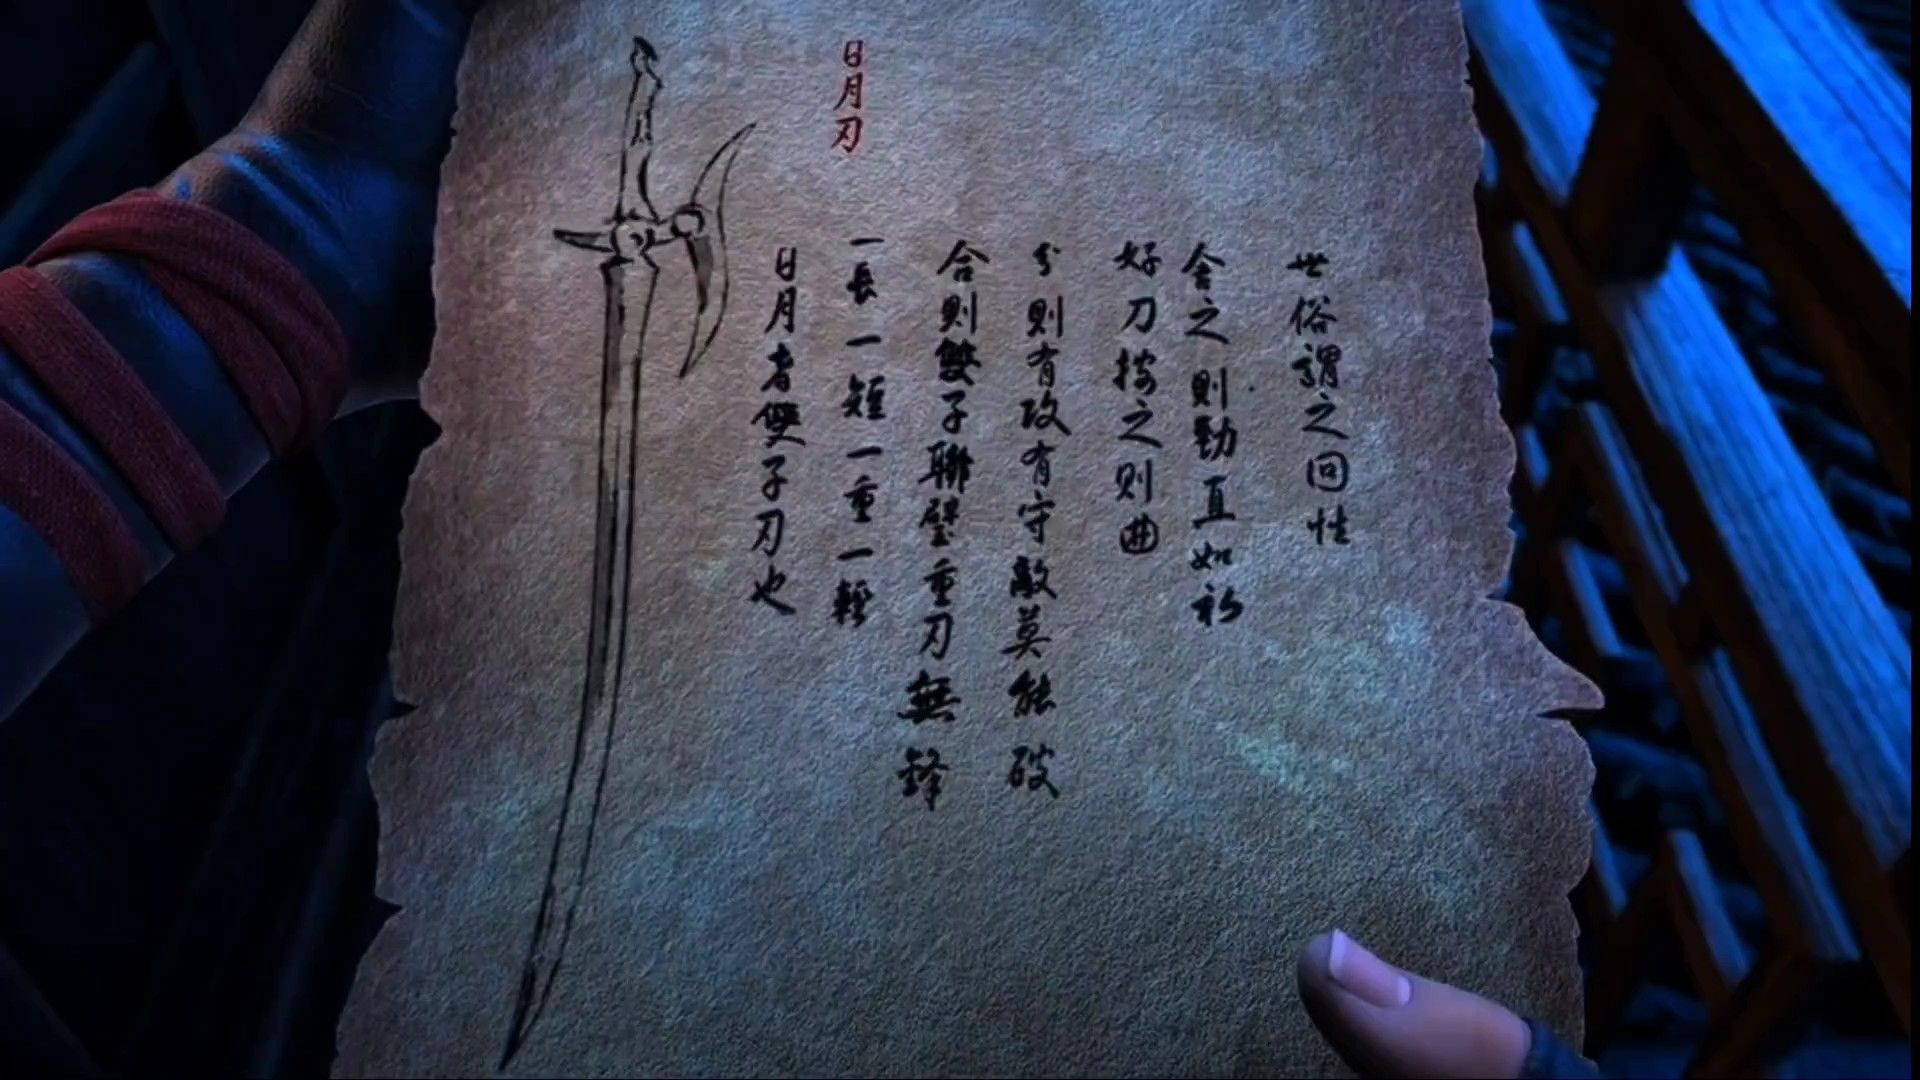 日月刃
日月者雙子刃也
一長一短一重一輕
合則雙子聯璧重刀無鋒
分則有攻有守敵莫能破
好刀按之则曲
舍之則勁直如初
世俗謂之回性